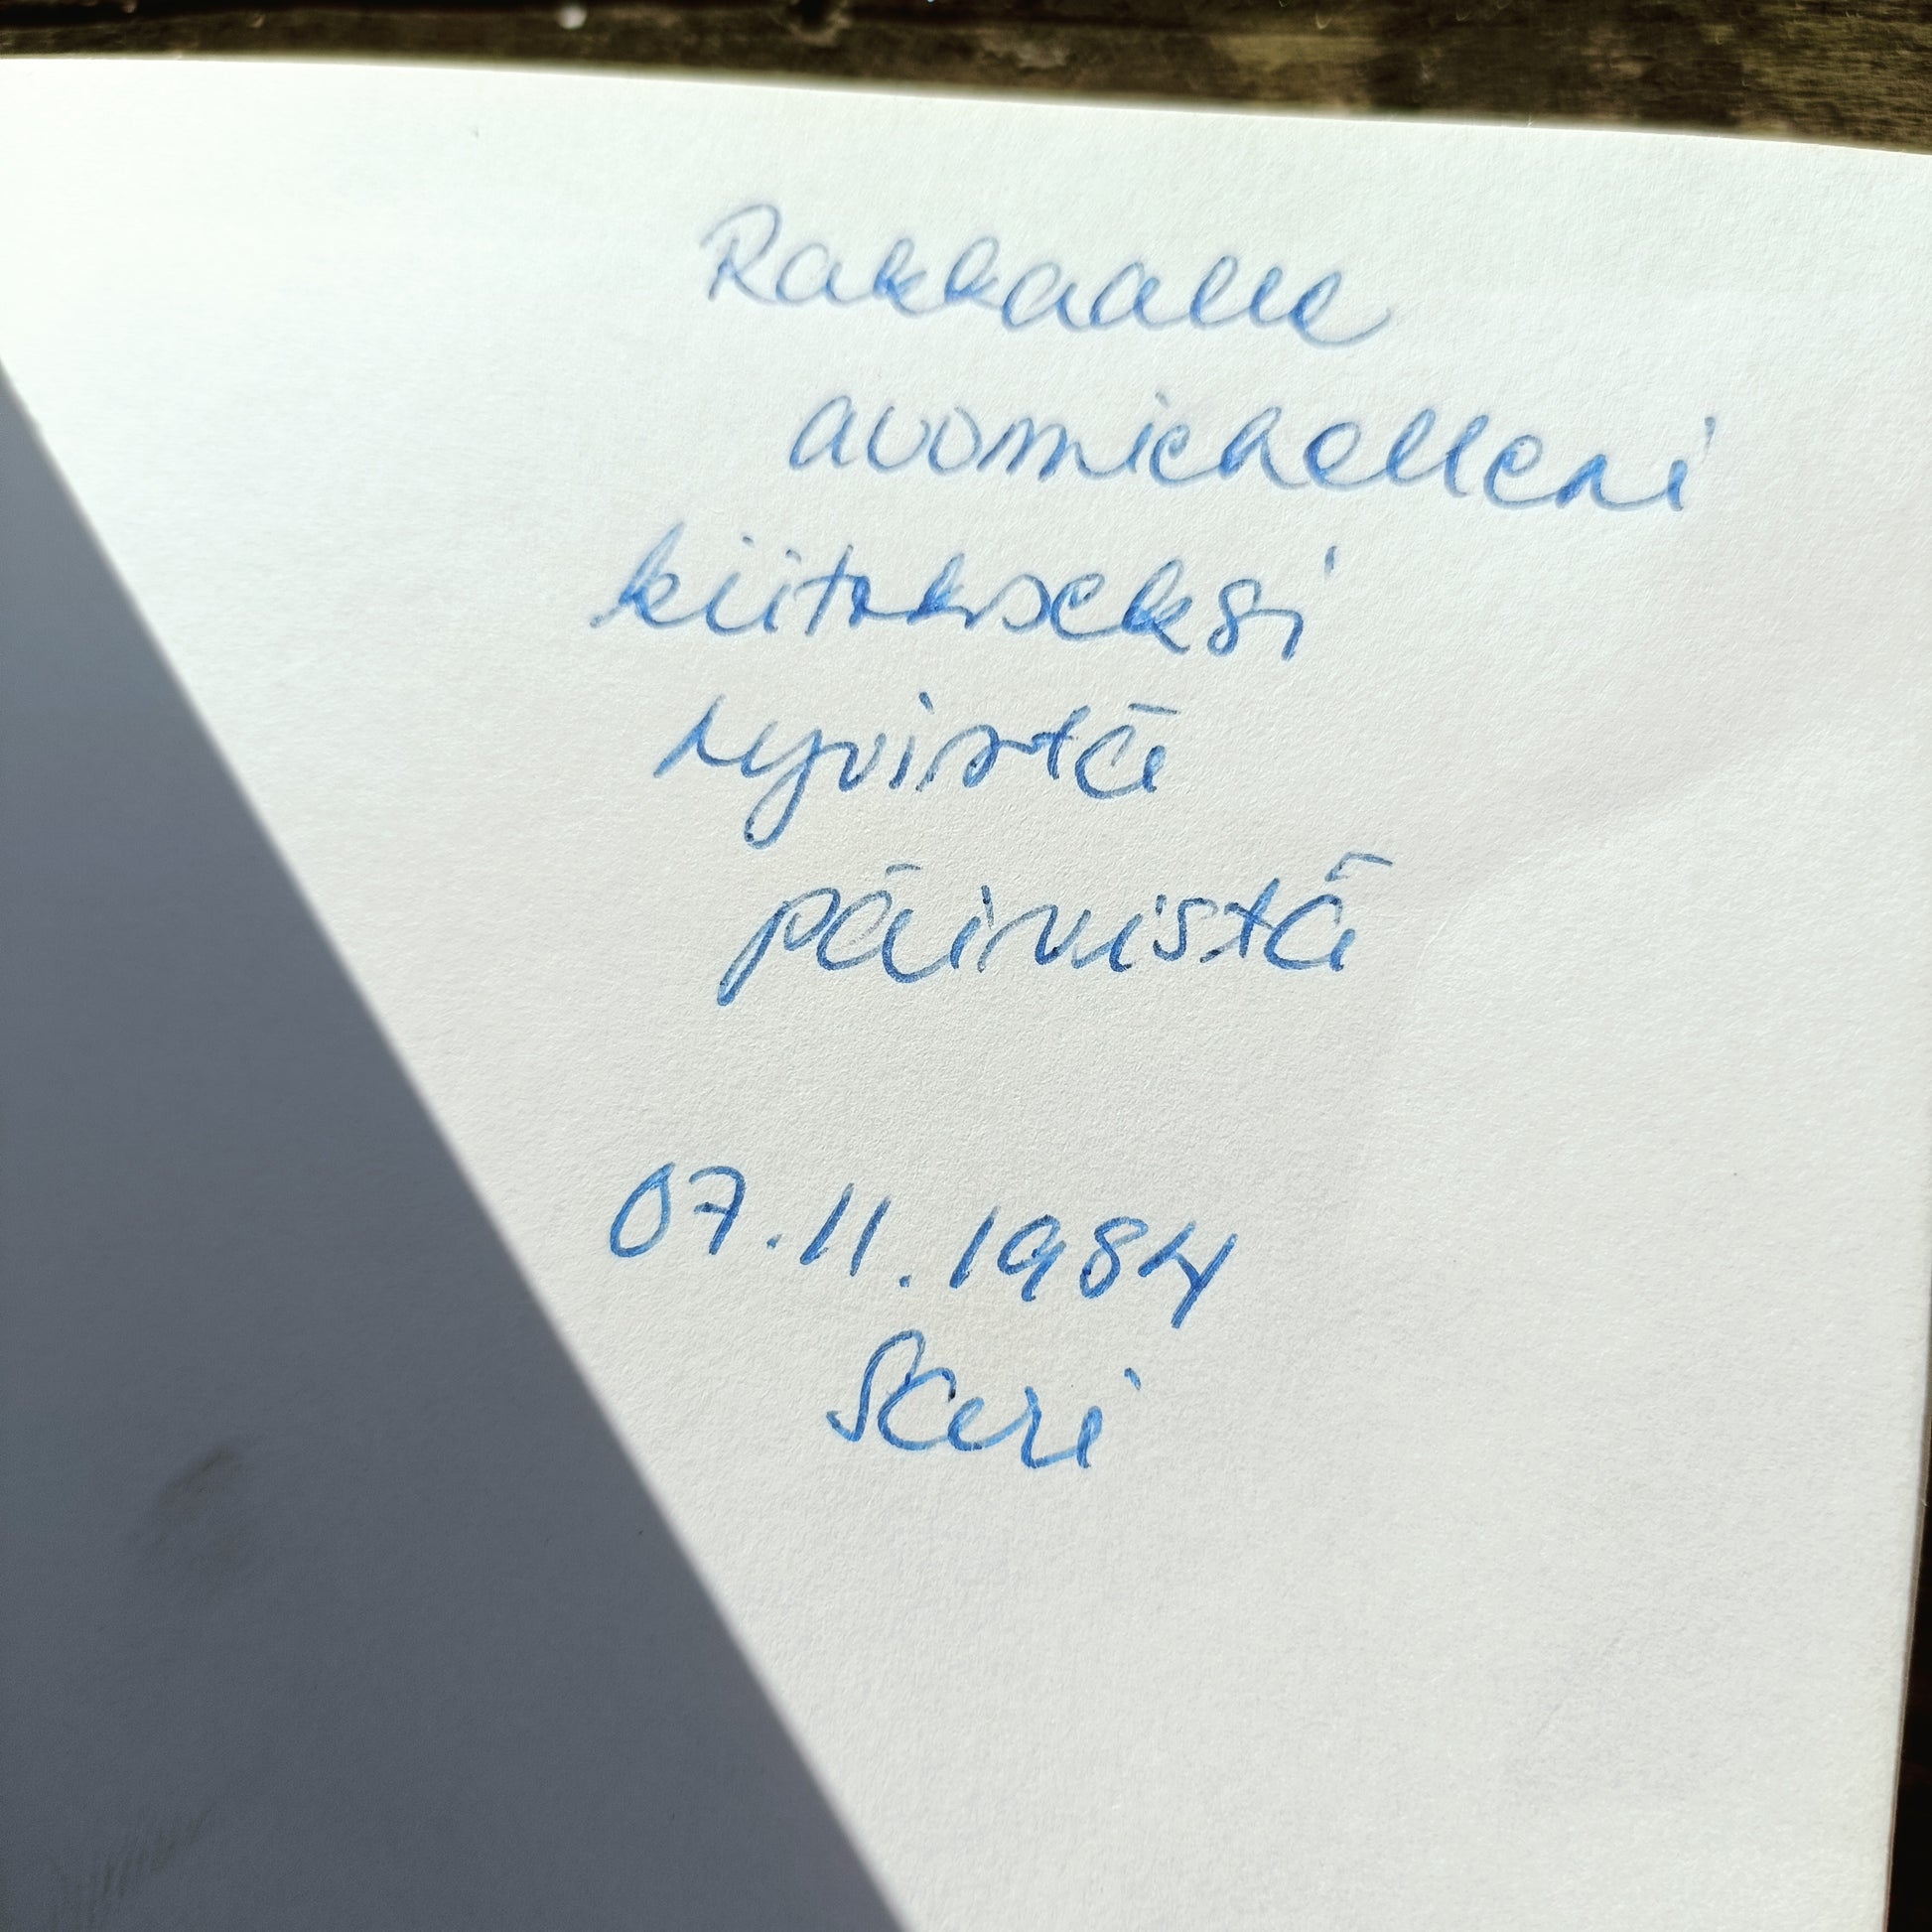 Rakkaalle
avomiehelleni
kiitokseksi
hyvistä
päivistä
07.11.1984
Sari